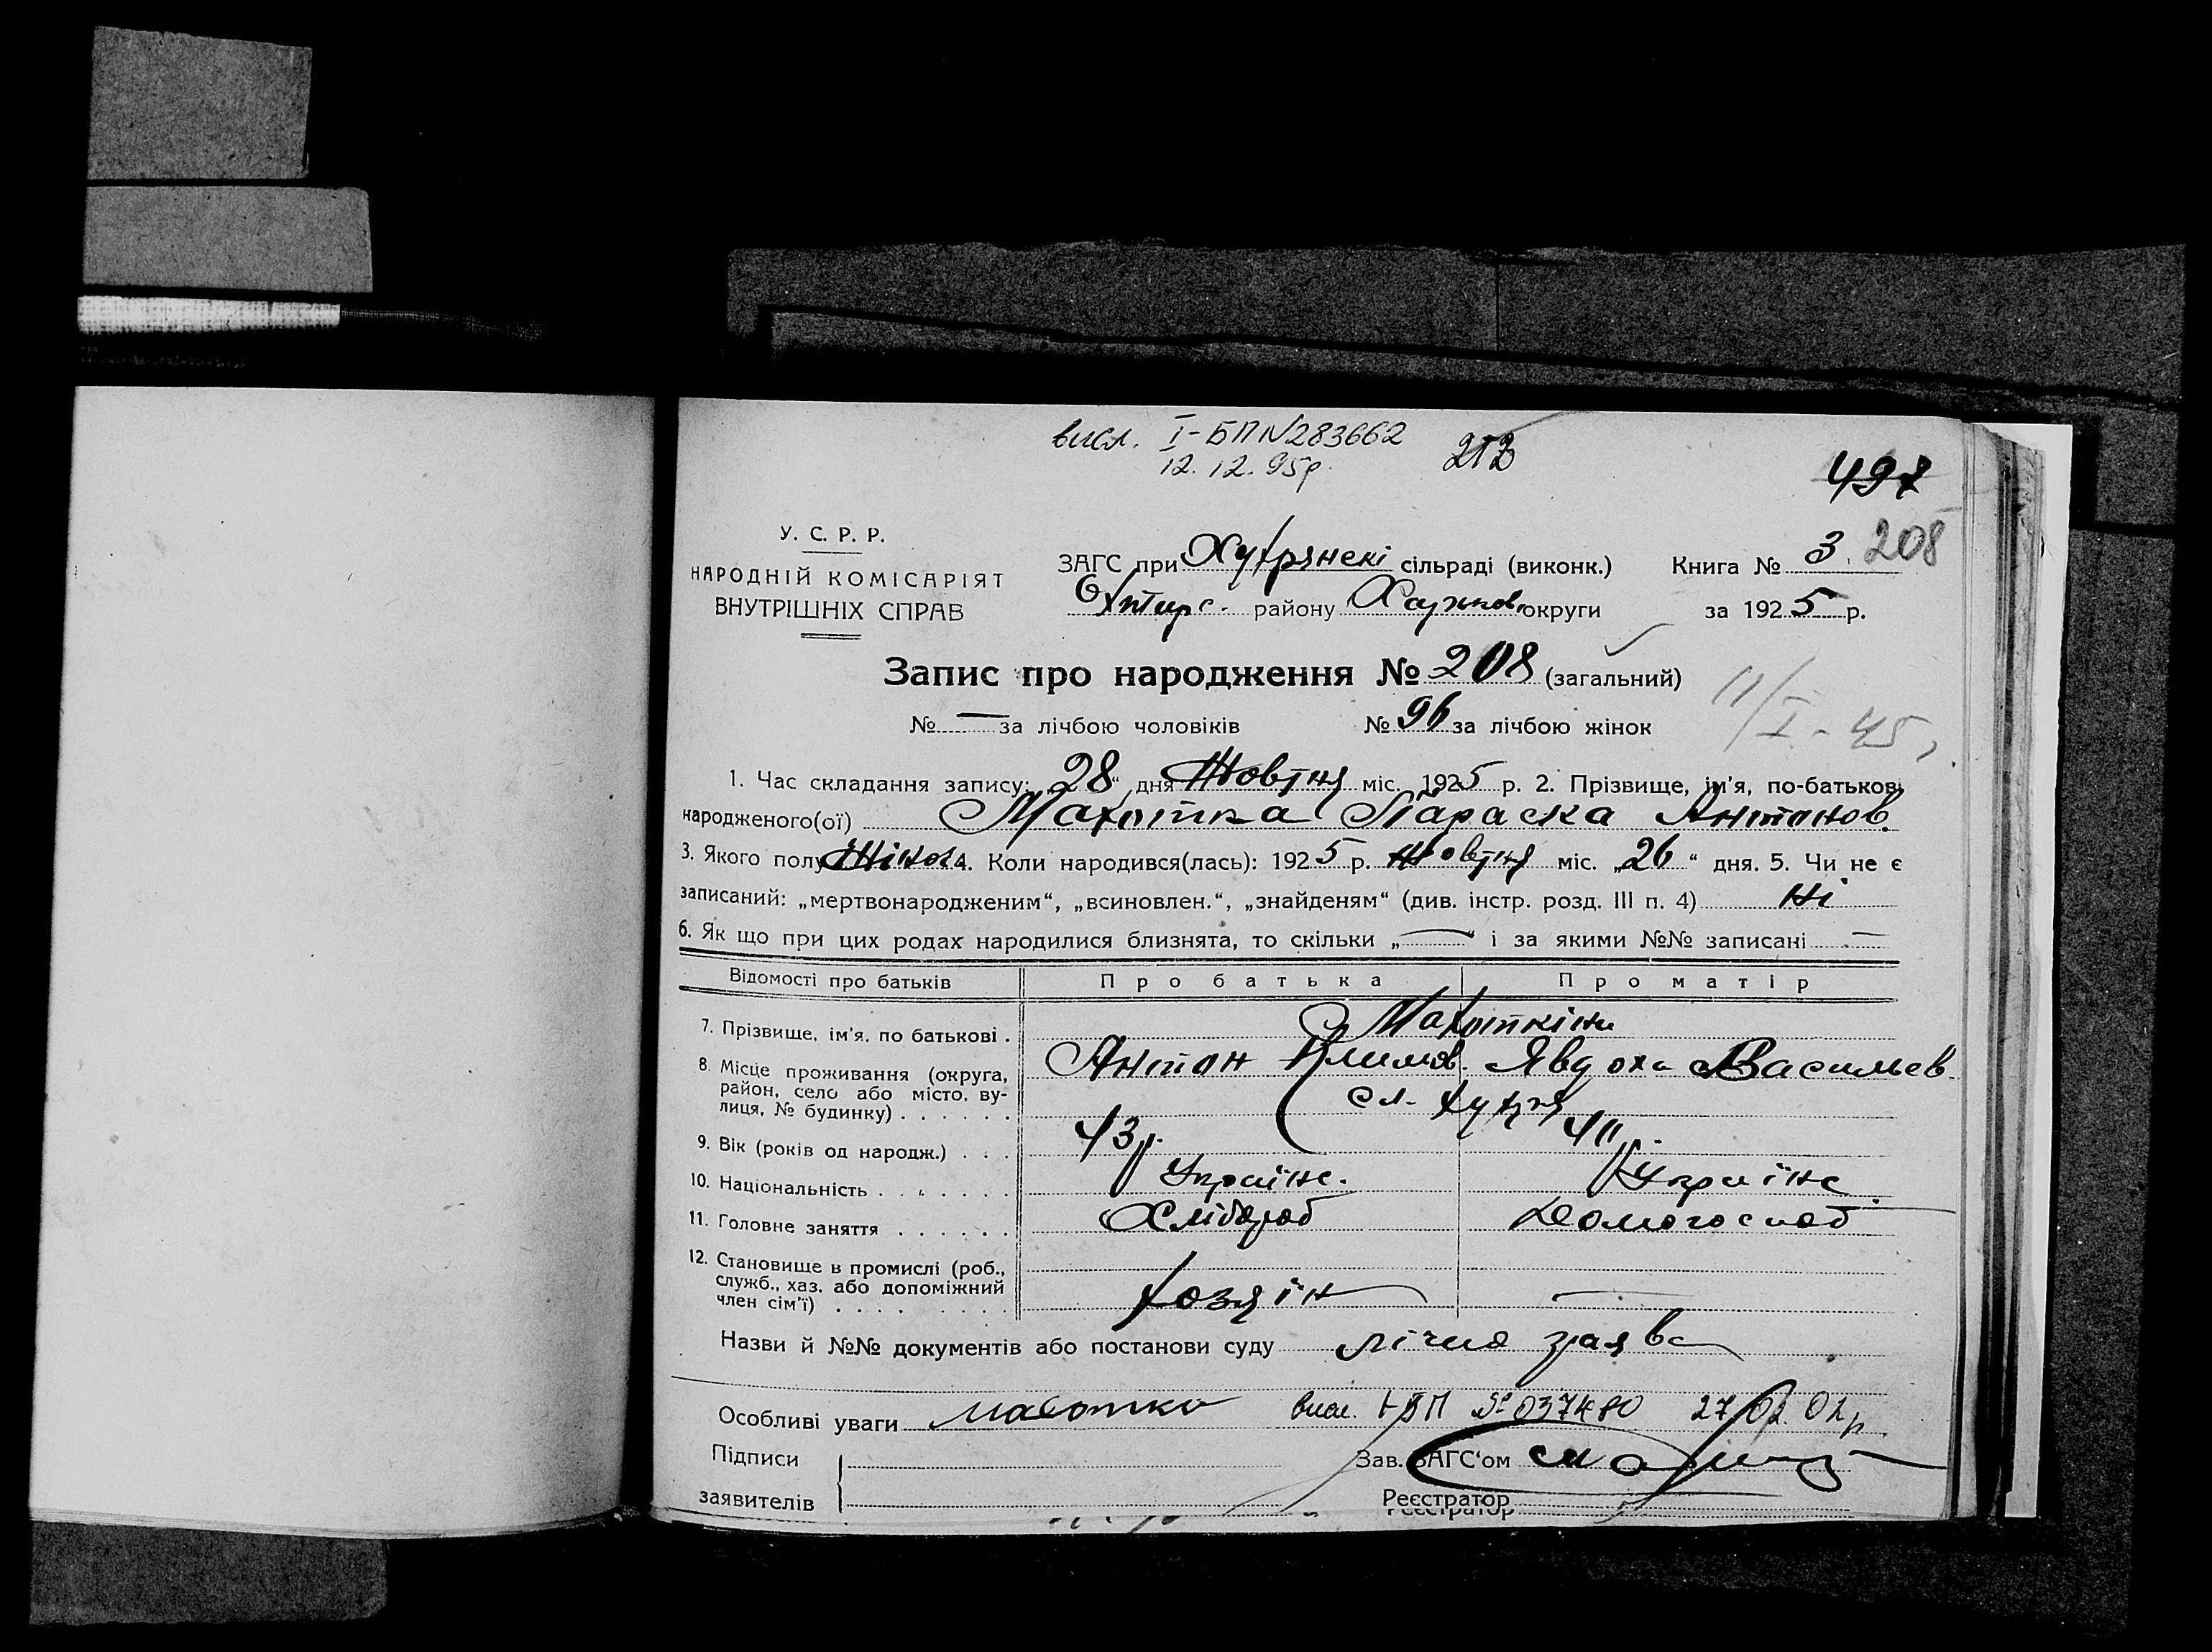 висл. І-БП №283662
12. 12. 95р.
212
497
208
У. С. Р. Р.
НАРОДНІЙ КОМІСАРІЯТ
ВНУТРІШНІХ СПРАВ
ЗАГС при Хухрянскі сільраді (виконк.) Книга № 3
Охтирс. району Харьков. округи за 1925 р.
Запис про народження № 208 (загальний)
№ — за лічбою чоловіків № 96 за лічбою жінок
11/I - 45
1. Час складання запису: „28“ дня Жовтня міс. 1925 р. 2. Прізвище, ім'я, по-батькові
народженого(ої) Махотка Параска Антонов.
3. Якого полу Жіноч. 4. Коли народився(лась): 1925 р. Жовтня міс. „26“ дня. 5. Чи не є
записаний: „мертвонародженим“, „всиновлен.“, „знайденям“ (див. інстр. розд. III п. 4) Ні
6. Як що при цих родах народилися близнята, то скільки „—“ і за якими №№ записані —
Відомості про батьків Про батька Про матір
7. Прізвище, ім'я, по батькові . Махоткіни
Антон Климов. Явдоха Васильев.
8. Місце проживання (округа,
район, село або місто, ву-
лиця, № будинку) . . . . . . сл. Хухря
9. Вік (років од народж.) . . . 43 р. 40 р.
10. Національність . . . . . . . Українс. Українс.
11. Головне заняття . . . . . . Хлібороб Домогоспод
12. Становище в промислі (роб.,
служб., хаз. або допоміжний
член сім'ї) . . . . . . . . . хозяїн —
Назви й №№ документів або постанови суду лічна заява
Особливі уваги Махотка висл. І-БП № 037480 27/02 02р.
Підписи
заявителів
Зав. ЗАГС'ом
Реєстратор
Реєстратор